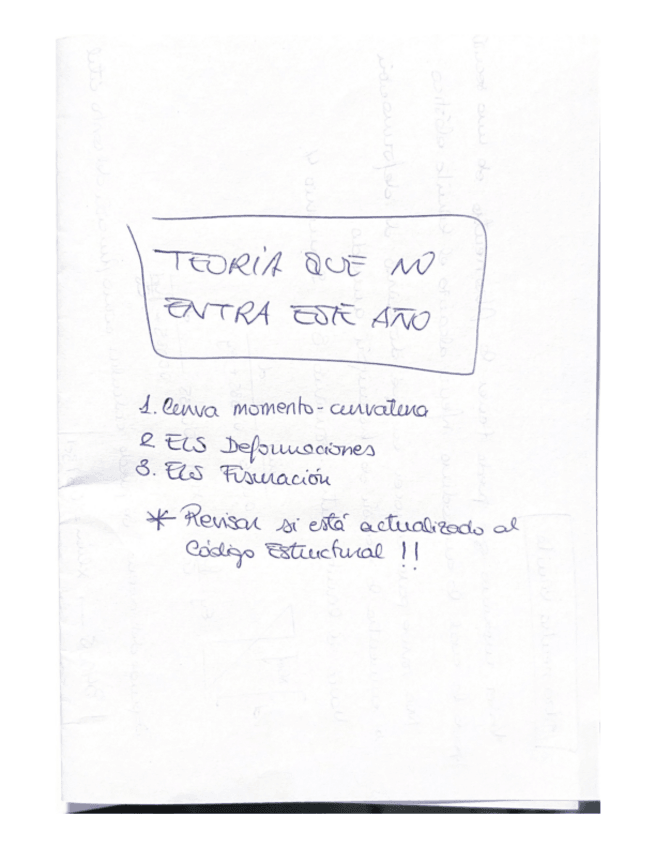 TEORÍA QUE NO
ENTRA ESTE AÑO
1. Curva momento-curvatura
2 ELS Deformaciones
3. ELS Fisuración
* Revisar si está actualizado al
Código Estructural !!